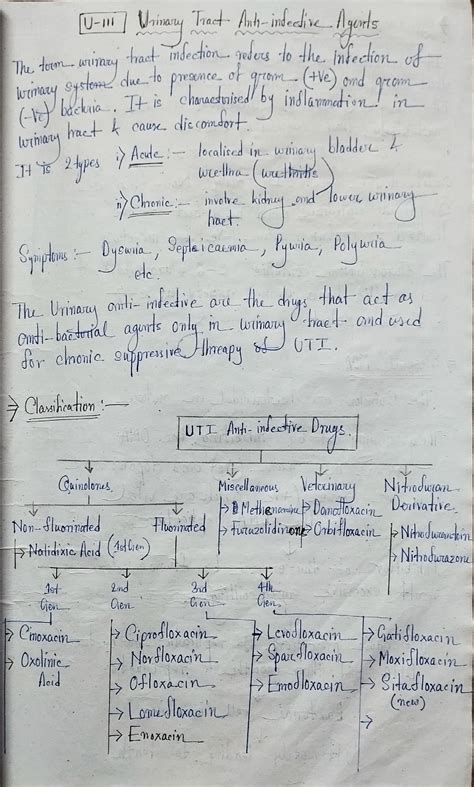 U-III Urinary Tract Anti-infective Agents
The term urinary tract infection refers to the infection of
urinary system due to presence of gram (+Ve) and gram
(-Ve) bacteria. It is characterised by inflammation in
urinary tract & cause discomfort.
It is 2 types i) Acute :- localised in urinary bladder &
urethra (urethritis)
ii) Chronic :- involve kidney and lower urinary
tract.
Symptoms :- Dysuria, Septicaemia, Pyuria, Polyuria
etc
The Urinary anti-infective are the drugs that act as
anti-bacterial agents only in urinary tract and used
for chronic suppressive threapy of UTI.
⇒ Classification :-
UTI Anti-infective Drugs.
Quinolones Miscellaneous Veterinary Nitrofuran
Derivative
→ Methenamine → Danofloxacin
→ Furazolidinone → Orbifloxacin
→ Nitrofurantoin
→ Nitrofurazone
Non-fluorinated Fluorinated
→ Nalidixic Acid (1st Gen)
1st 2nd 3rd 4th
Gen Gen Gen Gen
→ Cinoxacin → Ciprofloxacin → Levofloxacin → Gatifloxacin
→ Oxolinic → Norfloxacin → Sparfloxacin → Moxifloxacin
Acid → Ofloxacin → Emofloxacin → Sitafloxacin
(new)
→ Lomefloxacin →
→ Enoxacin